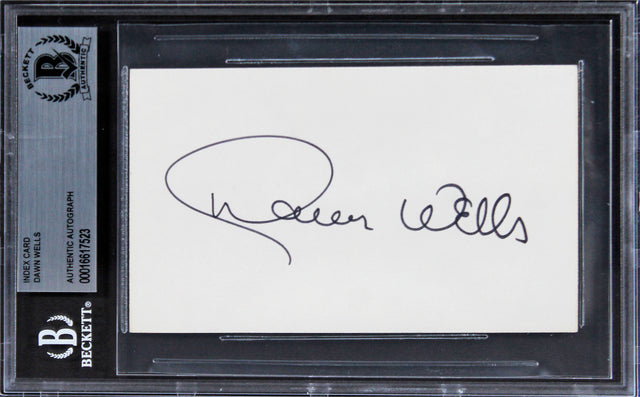 BECKETT
AUTHENTIC
B
INDEX CARD
DAWN WELLS
AUTHENTIC AUTOGRAPH
00016617523
B
BECKETT®
Dawn Wells